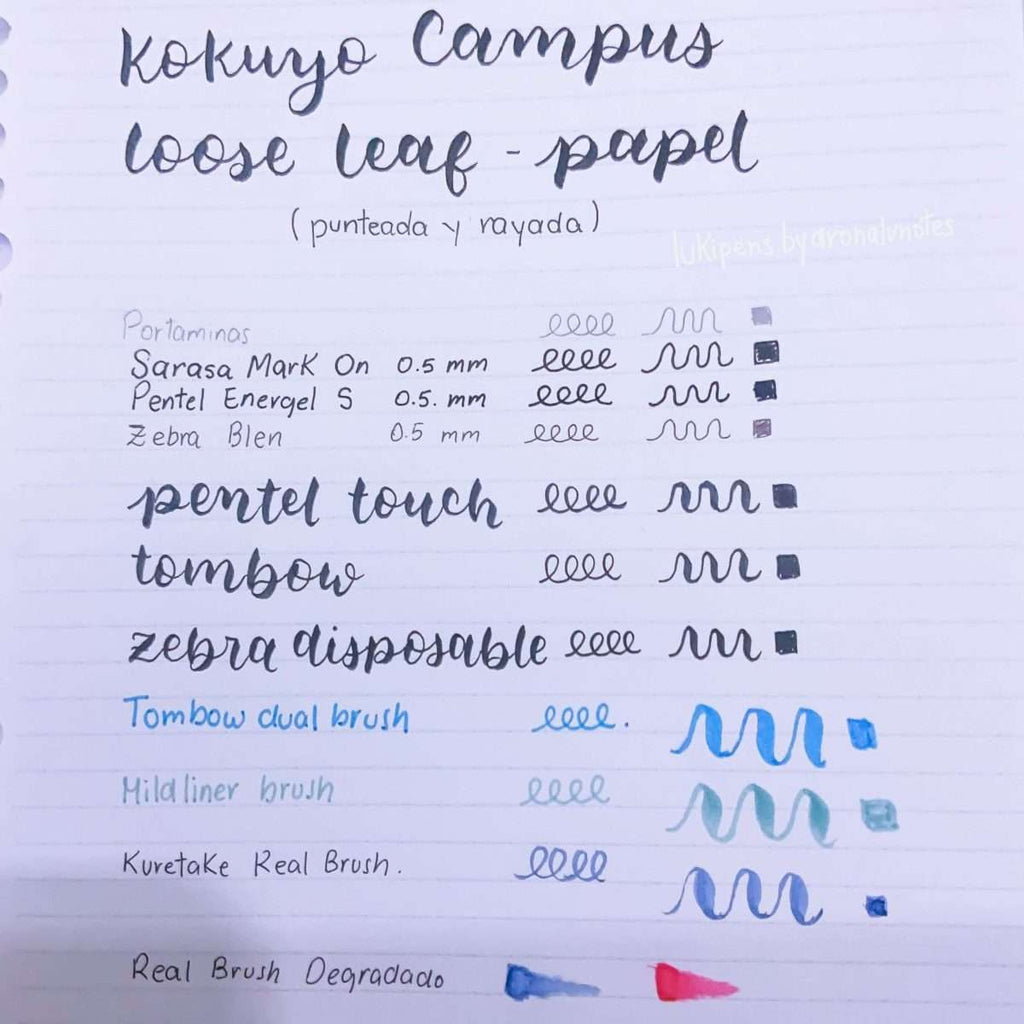 Kokuyo Campus
loose leaf - papel
(punteada y rayada)
lukipens by aronalunotes
Portaminas eeee
Sarasa Mark On 0.5 mm eeee
Pentel Energel S 0.5. mm eeee
Zebra Blen 0.5 mm eeee
pentel touch eeee
tombow eeee
zebra disposable eeee
Tombow dual brush eeee.
Mildliner brush eeee
Kuretake Real Brush. eeee
Real Brush Degradado